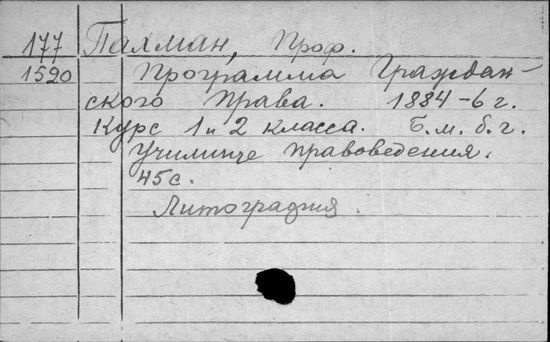 177 Палман, Проф.
1520 Программа Граждан-
ского Права. 1884-6 г.
Курс 1 и 2 класса. Б. м. б. г.
Училище правоведения.
45 с.
Литография.